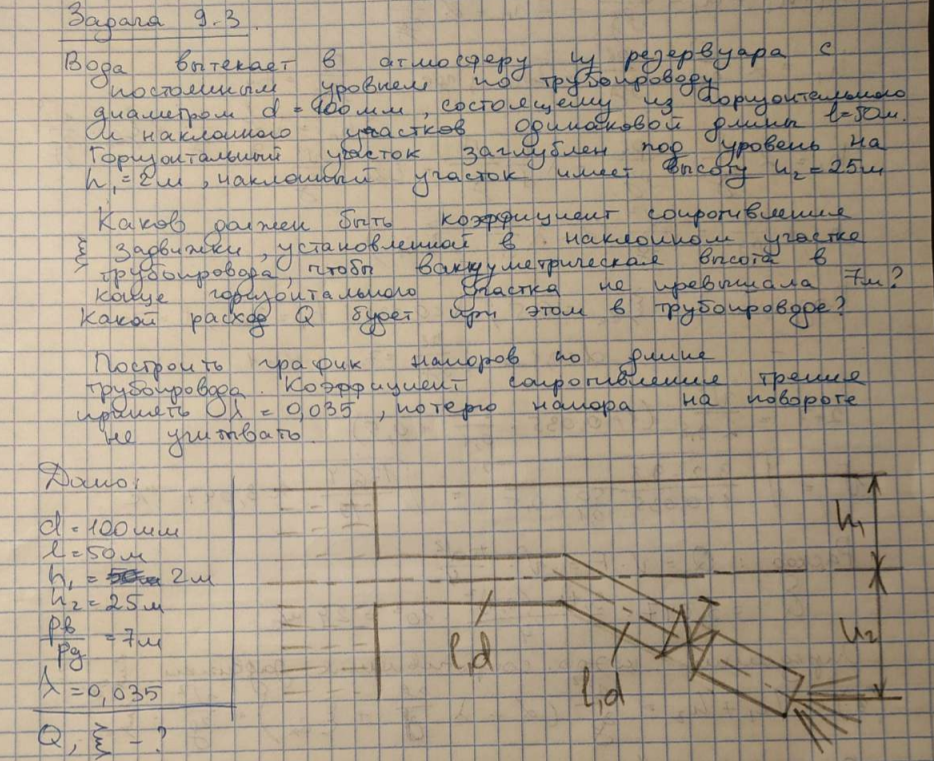 Задача 9-3.
Вода вытекает в атмосферу из резервуара с
постоянным уровнем по трубопроводу
диаметром d = 100 мм, состоящему из горизонтального
и наклонного участков одинаковой длины l = 50м.
Горизонтальный участок заглублен под уровень на
h₁ = 2м, наклонный участок имеет высоту h₂ = 25м
Каков должен быть коэффициент сопротивления
ξ задвижки, установленной в наклонном участке
трубопровода, чтобы вакуумметрическая высота в
конце горизонтального участка не превышала 7м?
Какой расход Q будет при этом в трубопроводе?
Построить график напоров по длине
трубопровода. Коэффициент сопротивления трения
принять λ = 0,035, потерю напора на повороте
не учитывать.
Дано:
d = 100 мм
l = 50 м
h₁ = 2м
h₂ = 25м
pв/ρg = 7м
λ = 0,035
Q, ξ - ?
h₁
h₂
l,d
l,d